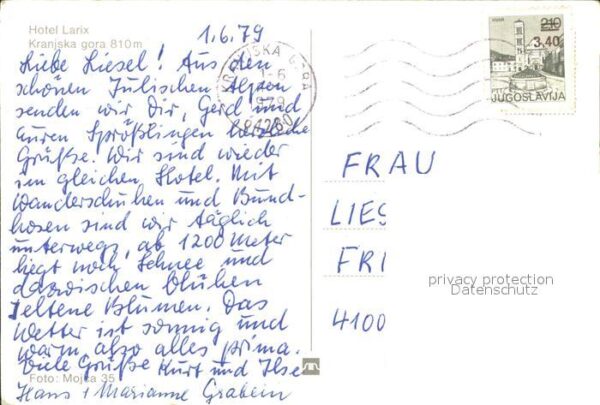 Hotel Larix
Kranjska gora 810 m
1.6.79
Liebe Liesel! Aus den
schönen Julischen Alpen
senden wir Dir, Gerd und
euren Sprößlingen herzliche
Grüße. Wir sind wieder
im gleichen Hotel. Mit
Wanderschuhen und Bund-
hosen sind wir täglich
unterwegs, ab 1200 Meter
liegt noch Schnee und
dazwischen blühen
seltene Blumen. Das
Wetter ist sonnig und
warm also alles prima.
Viele Grüße Kurt und Ilse
Hans + Marianne
Foto: Mojca 35
KRANJSKA GORA
1-6
1979
64280
2.10
3.40
JUGOSLAVIJA
FRAU
LIES
FRI
4100
privacy protection
Datenschutz